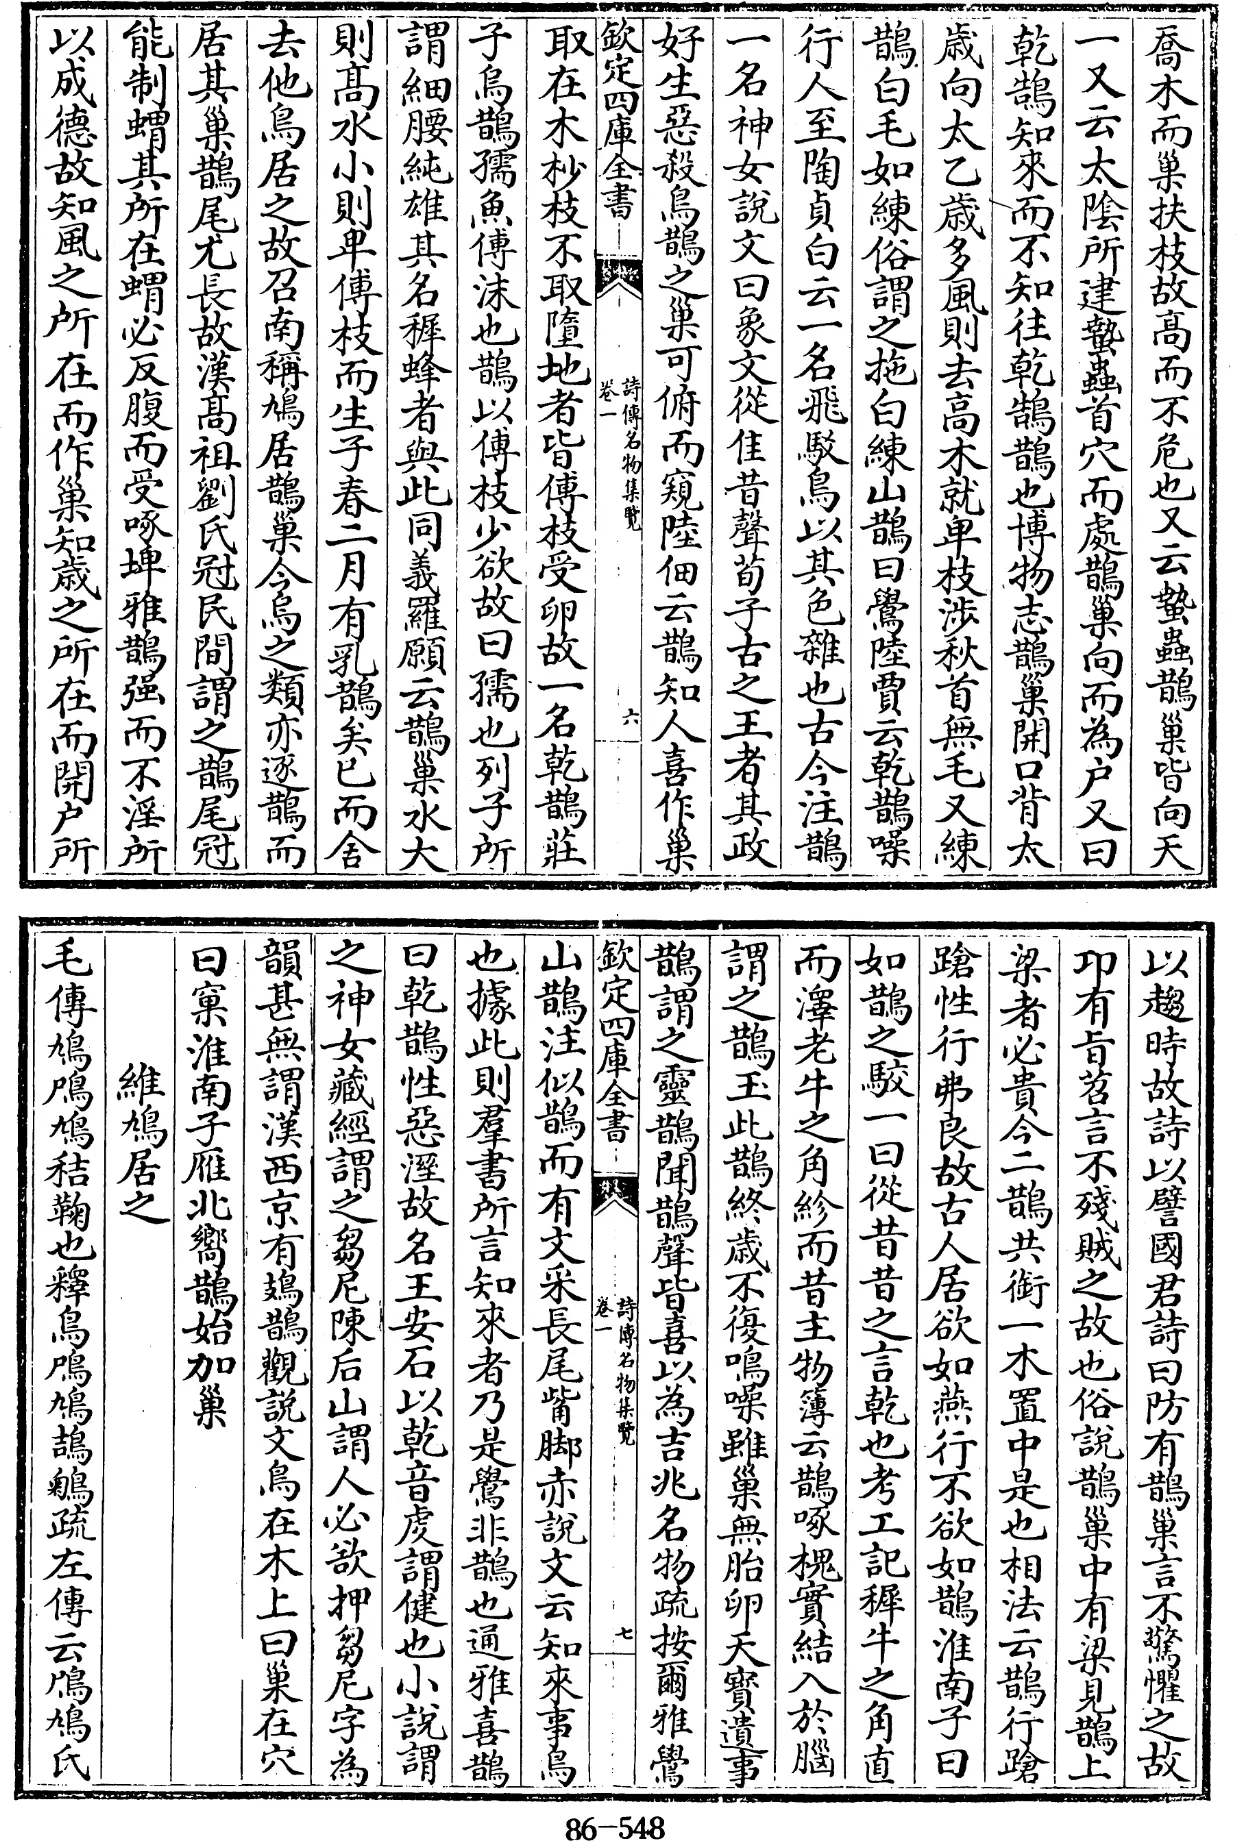 喬木而巢扶枝故髙而不危也又云蟄蟲鵲巢皆向天
一又云太陰所建蟄蟲首穴而處鵲巢向而為户又曰
乾鵠知來而不知往乾鵠鵲也博物志鵲巢開口背太
歳向太乙歳多風則去高木就卑枝涉秋首無毛又練
鵲白毛如練俗謂之拖白練山鵲曰鷽陸賈云乾鵲噪
行人至陶貞白云一名飛駮鳥以其色雜也古今注鵲
一名神女說文曰象文從隹昔聲荀子古之王者其政
好生惡殺鳥鵲之巢可俯而窺陸佃云鵲知人喜作巢
欽定四庫全書
詩傳名物集覽
卷一
六
取在木杪枝不取墮地者皆傳枝受卵故一名乾鵲莊
子烏鵲孺魚傅沬也鵲以傅枝少欲故曰孺也列子所
謂細腰純雄其名穉蜂者與此同義羅願云鵲巢水大
則髙水小則卑傅枝而生子春二月有乳鵲矣已而舍
去他鳥居之故召南稱鳩居鵲巢今烏之類亦逐鵲而
居其巢鵲尾尤長故漢髙祖劉氏冠民間謂之鵲尾冠
能制蝟其所在蝟必反腹而受啄埤雅鵲强而不淫所
以成德故知風之所在而作巢知歳之所在而開户所
以趨時故詩以譬國君詩曰防有鵲巢言不驚懼之故
卭有旨苕言不殘賊之故也俗說鵲巢中有梁見鵲上
梁者必貴今二鵲共銜一木置中是也相法云鵲行蹌
蹌性行弗良故古人居欲如燕行不欲如鵲淮南子曰
如鵲之駮一曰從昔昔之言乾也考工記穉牛之角直
而澤老牛之角紾而昔主物簿云鵲啄槐實結入於腦
謂之鵲玉此鵲終歳不復鳴噪雖巢無胎卵天寳遺事
鵲謂之靈鵲聞鵲聲皆喜以為吉兆名物疏按爾雅鷽
欽定四庫全書
詩傳名物集覽
卷一
七
山鵲注似鵲而有文采長尾觜脚赤說文云知來事鳥
也據此則羣書所言知來者乃是鷽非鵲也通雅喜鵲
曰乾鵲性惡溼故名王安石以乾音䖍謂健也小說謂
之神女藏經謂之芻尼陳后山謂人必欲押芻尼字為
韻甚無謂漢西京有鳷鵲觀說文鳥在木上曰巢在穴
曰窠淮南子雁北嚮鵲始加巢
維鳩居之
毛傳鳩鳲鳩秸鞠也釋鳥鳲鳩鴶鵴疏左傳云鳲鳩氏
86-548